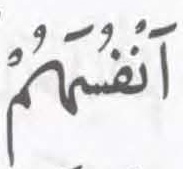 آنْفُسَهُمْ